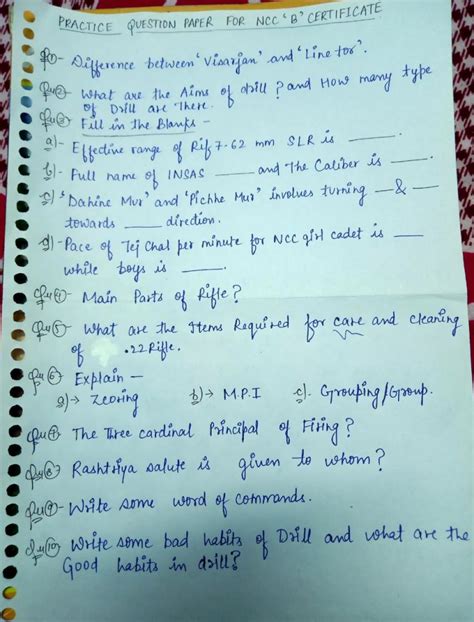 PRACTICE QUESTION PAPER FOR NCC 'B' CERTIFICATE
Qu①- Difference between 'Visarjan' and 'Line tor'.
Qu②- What are the Aims of drill? and How many type
of Drill are There.
Qu③- Fill in the Blanks -
a)- Effective range of Rif 7.62 mm SLR is ______.
b)- Full name of INSAS ______ and The Caliber is ______.
c)- 'Dahine Mur' and 'Pichhe Mur' involves turning __ & __
towards ______ direction.
d)- Pace of Tej Chal per minute for NCC girl cadet is ___
while boys is ______.
Qu④- Main Parts of Rifle?
Qu⑤- What are the Items Required for care and cleaning
of .22 Rifle.
Qu⑥ Explain -
a)→ Zeoring b)→ M.P.I c)- Grouping/Group.
Qu⑦ The Three cardinal Principal of Firing?
Qu⑧ Rashtriya salute is given to whom?
Qu⑨- Write some word of commands.
Qu⑩ Write some bad habits of Drill and what are the
Good habits in drill?